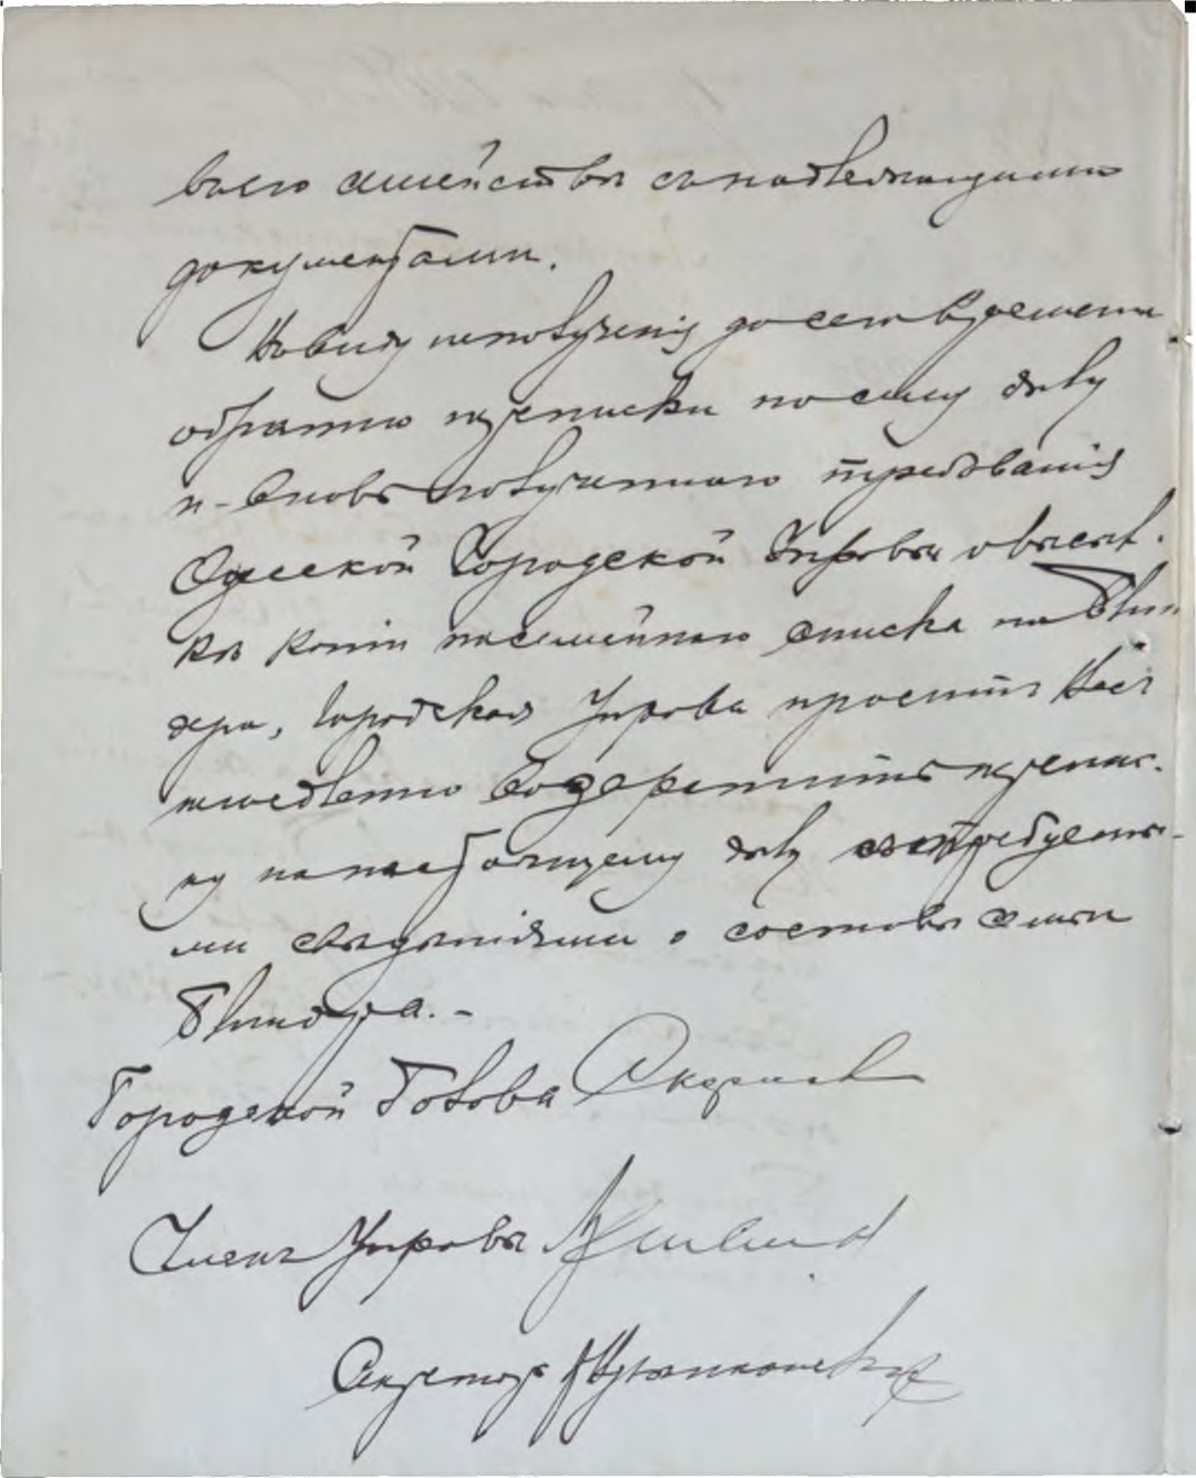 всего семейства съ надлежащими
документами.
Въ виду неполученія до сего времени
обратно переписки по сему дѣлу
и вновь полученнаго требованія
Одесской Городской Управы о высыл-
кѣ копіи посемейнаго списка на Блин
дера, Городская Управа проситъ Васъ
немедленно возвратить перепис-
ку по настоящему дѣлу съ требуемы-
ми свѣдѣніями о составѣ семьи
Блиндера. -
Городской Голова
Членъ Управы
Секретарь